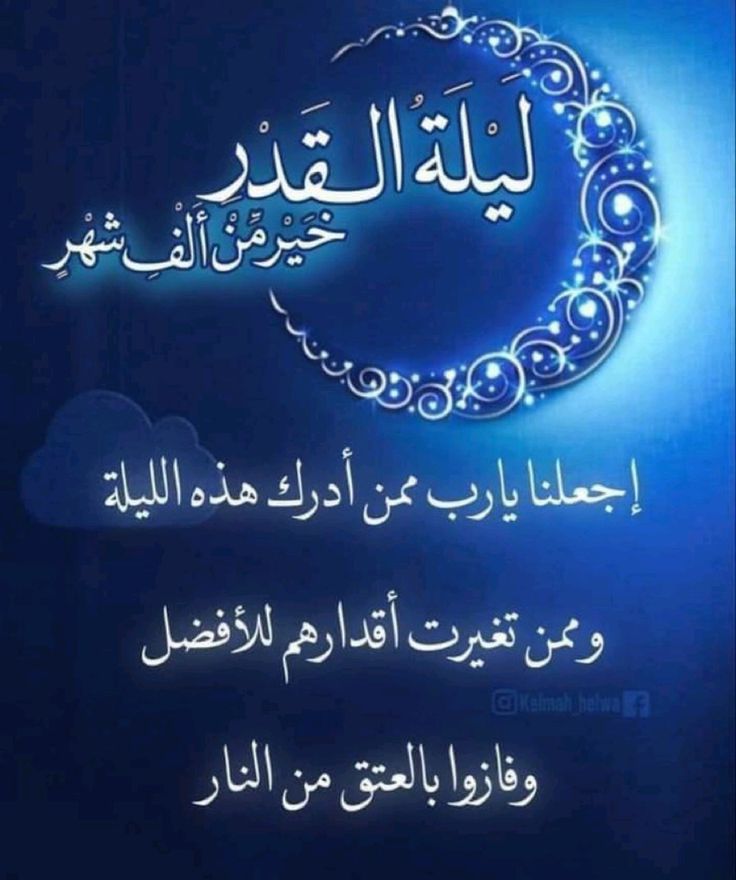 لَيْلَةُ الْقَدْرِ
خَيْرٌ مِّنْ أَلْفِ شَهْرٍ
إجعلنا يارب ممن أدرك هذه الليلة
وممن تغيرت أقدارهم للأفضل
Kelmah_helwa
وفازوا بالعتق من النار